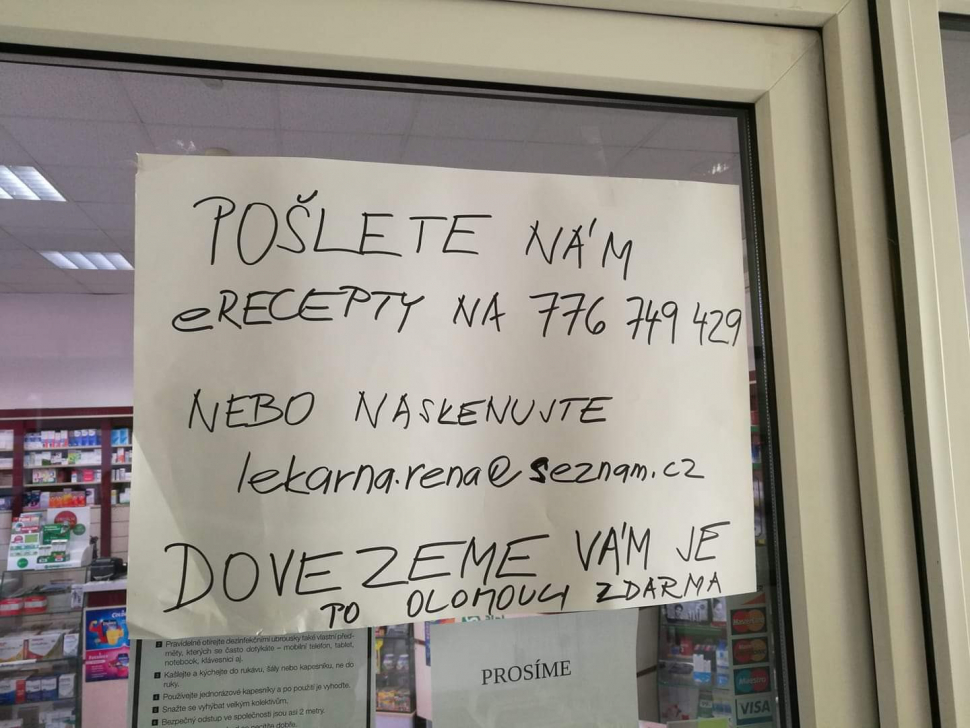 POŠLETE NÁM
eRECEPTY NA 776 749 429
NEBO NASKENUJTE
lekarna.rena@seznam.cz
DOVEZEME VÁM JE
PO OLOMOUCI ZDARMA
Pravidelně otírejte dezinfekčními ubrousky také vlastní před-
měty, kterých se často dotýkáte – mobilní telefon, tablet,
notebook, klávesnici aj.
Kašlejte a kýchejte do rukávu, šály nebo kapesníku, ne do
ruky.
Používejte jednorázové kapesníky a po použití je vyhoďte.
Snažte se vyhýbat velkým kolektivům.
Bezpečný odstup ve společnosti jsou asi 2 metry.
PROSÍME
MasterCard
Maestro
VISA